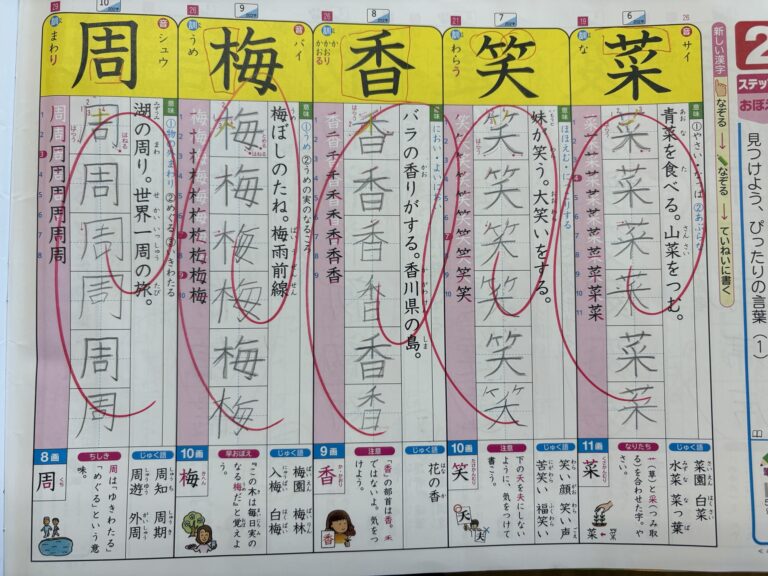 2
ステップ
見つけよう、ぴったりの言葉（1）
新しい漢字
なぞる→なぞる→ていねいに書く
19
6
26
菜
音 サイ
訓 な
意味
①やさい・なっぱ ②あぶらな
青菜を食べる。山菜をつむ。
菜 菜 菜 菜 菜 菜
11画
菜
なりたち
艹（草）と采（つみ取る）を合わせた字。やさい。
じゅく語
菜園 白菜
水菜 菜っ葉
21
7
笑
訓 わらう
意味
ほほえむ・にっこりする
妹が笑う。大笑いをする。
笑 笑 笑 笑 笑 笑
10画
笑
注意
下の夭を夫にしないように、気をつけて書こう。
じゅく語
笑い顔 笑い声
苦笑い 福笑い
20
8
香
訓 か
かおり
かおる
意味
におい・よいにおい
バラの香りがする。香川県の島。
香 香 香 香 香 香
9画
香
注意
「香」の部首は香。禾ではないよ。気をつけよう。
じゅく語
花の香
26
9
梅
音 バイ
訓 うめ
意味
①うめ ②うめの実のなるころ
梅ぼしのたね。梅雨前線
梅 梅 梅 梅 梅 梅
10画
梅
字おぼえ
「この木は毎日実のなる梅だ」と覚えよう。
じゅく語
梅園 梅林
入梅 白梅
29
10
周
音 シュウ
訓 まわり
意味
①物のまわり ②めぐる ③ゆきわたる
湖の周り。世界一周の旅。
周 周 周 周 周 周
8画
周
ちしき
周は、「ゆきわたる」「めぐる」という意味。
じゅく語
周知 周期
周遊 外周